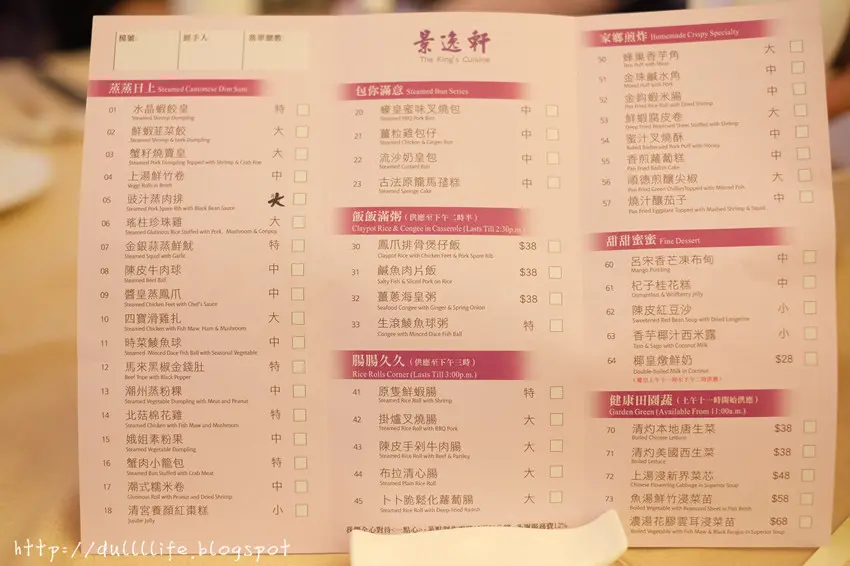 檯號:
經手人:
景逸軒
The King's Cuisine
蒸蒸日上 Steamed Cantonese Dim Sum
01 水晶蝦餃皇 特
Steamed Shrimp Dumpling
02 鮮蝦韮菜餃 大
Steamed Shrimp & Leek Dumpling
03 蟹籽燒賣皇 大
Steamed Pork Dumpling Topped with Shrimp & Crab Roe
04 上湯鮮竹卷 中
Veggi Rolls in Broth
05 豉汁蒸肉排 大
Steamed Pork Spare Rib with Black Bean Sauce
06 瑤柱珍珠雞 大
Steamed Glutinous Rice Stuffed with Pork, Mushroom & Conpoy
07 金銀蒜蒸鮮魷 特
Steamed Squid with Garlic
08 陳皮牛肉球 中
Steamed Beef Ball
09 醬皇蒸鳳爪 中
Steamed Chicken Feet with Chef's Sauce
10 四寶滑雞扎 大
Steamed Chicken with Fish Maw, Ham & Mushroom
11 時菜鯪魚球 中
Steamed Minced Dace Fish Ball with Seasonal Vegetable
12 馬來黑椒金錢肚 特
Beef Tripe with Black Pepper
13 潮州蒸粉粿 中
Steamed Vegetable Dumpling with Meat and Peanut
14 北菇棉花雞 特
Steamed Chicken with Fish Maw and Mushroom
15 娥姐素粉果 中
Steamed Vegetable Dumpling
16 蟹肉小籠包 特
Steamed Bun Stuffed with Crab Meat
17 潮式糯米卷 中
Glutinous Roll with Peanut and Dried Shrimp
18 清宮養顏紅棗糕 小
Jujube Jelly
包你滿意 Steamed Bun Series
20 蠔皇蜜味叉燒包 中
Steamed BBQ Pork Bun
21 薑粒雞包仔 中
Steamed Chicken & Ginger Bun
22 流沙奶皇包 中
Steamed Custard Bun
23 古法原籠馬拉糕 中
Steamed Sponge Cake
飯飯滿粥 (供應至下午二時半)
Claypot Rice & Congee in Casserole (Lasts Till 2:30p.m.)
30 鳳爪排骨煲仔飯 $38
Claypot Rice with Chicken Feet & Pork Spare Rib
31 鹹魚肉片飯 $38
Salty Fish & Sliced Pork on Rice
32 薑蔥海皇粥 $38
Seafood Congee with Ginger & Spring Onion
33 生滾鯪魚球粥 特
Congee with Minced Dace Fish Ball
腸腸久久 (供應至下午三時)
Rice Rolls Corner (Lasts Till 3:00p.m.)
41 原隻鮮蝦腸 特
Steamed Rice Roll with Shrimp
42 掛爐叉燒腸 大
Steamed Rice Roll with BBQ Pork
43 陳皮手剁牛肉腸 大
Steamed Rice Roll with Beef & Parsley
44 布拉清心腸 大
Steamed Plain Rice Roll
45 卜卜脆鬆化蘿蔔腸 大
Steamed Rice Roll with Deep Fried Radish
家鄉煎炸 Homemade Crispy Specialty
50 蜂巢香芋角 大
51 金珠鹹水角 中
52 金鈎蝦米腸 中
Pan Fried Rice Roll with Dried Shrimp
53 鮮蝦腐皮卷 大
Deep Fried Beancurd Sheet Stuffed with Shrimp
54 蜜汁叉燒酥 中
Baked Barbecued Pork Puff with Honey
55 香煎蘿蔔糕 中
Pan Fried Radish Cake
56 順德煎釀尖椒 大
Pan Fried Green Chillies Topped with Minced Fish
57 燒汁釀茄子 中
Pan Fried Eggplant Topped with Mashed Shrimp & Squid
甜甜蜜蜜 Fine Dessert
60 呂宋香芒凍布甸 中
Mango Pudding
61 杞子桂花糕 中
Osmanthus & Wolfberry Jelly
62 陳皮紅豆沙 小
Sweetened Red Bean Soup with Dried Tangerine
63 香芋椰汁西米露 小
Taro & Sago with Coconut Milk
64 椰皇燉鮮奶 $28
Double-Boiled Milk in Coconut
健康田園蔬 (上午十一時開始供應)
Garden Green (Available From 11:00a.m.)
70 清灼本地唐生菜 $38
Boiled Chinese Lettuce
71 清灼美國西生菜 $38
Boiled Lettuce
72 上湯浸新界菜芯 $48
Chinese Flowering Cabbage in Superior Soup
73 魚湯鮮竹浸菜苗 $58
Boiled Vegetable with Beancurd Sheet in Fish Broth
濃湯花膠雲耳浸菜苗 $68
Boiled Vegetable with Fish Maw & Black Fungus in Superior Soup
http://dullllife.blogspot